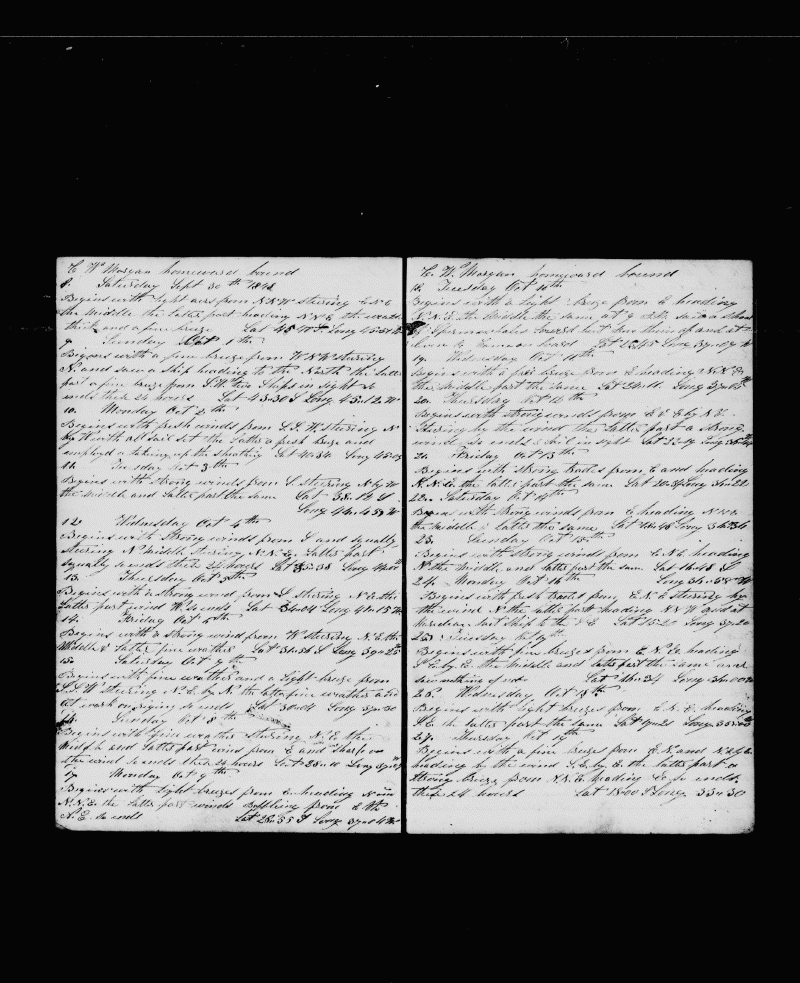 C W Morgan homeward bound
8. Saturday Sept 30th 1848
Begins with light airs from N.N.W. steering E.N.E
the Middle the latter part heading N.N.E the weather
thick and a fine breeze Lat 45 Long 45
9 Sunday Oct 1th
Begins with a fine breeze from W.N.W steering
N. and saw a ship heading to the North the latter
part a fine breeze from S.W two ships in sight so
ends these 24 hours Lat 43=30 S Long 45=12 W
10. Monday Oct 2th
Begins with fresh winds from S.S.W steering N
by W with all sail set the latter a fresh breeze and
employed a taking up the sheathing Lat 40=34 Long 45=09
11. Tuesday Oct 3th
Begins with strong winds from S steering N by W
the Middle and latter part the same Lat 38=12 S
Long 44=45 W
12. Wednesday Oct 4th
Begins with strong winds from S and squally
steering N Middle steering N.N.E. latter part
squally so ends these 24 hours Lat 35=38 Long
13. Thursday Oct 5th
Begins with a strong wind from S steering N.E. the
latter part wind W. so ends Lat 34=04 Long 41=15 W
14. Friday Oct 6th
Begins with a strong wind from W steering N.E. the
Middle & latter fine weather Lat 31=56 S Long 39=25
15. Saturday Oct 7th
Begins with fine weather and a light breeze from
S.S.W steering N.E. by N. the latter fine weather
at work on riging so ends Lat 30=04 Long 37=30
16. Sunday Oct 8th
Begins with fine weather steering N.E. the
Middle and latter part wind from E and sharp on
the wind so ends these 24 hours Lat 28=10 Long
17 Monday Oct 9th
Begins with light breezes from E heading N
N.N.E. the latter part winds baffling from E to
N.E. so ends Lat 26=55 S Long 37=04 W
C. W. Morgan homeward bound
18. Tuesday Oct 10th
Begins with a light breeze from E heading
N.N.E. the Middle the same at 9 A.M. saw a school
of Spermwhales lowered but
Lat 25=45 Long 37=17 W
19. Wednesday Oct 11th
Begins with a fair breeze from E heading N.N.E
the Middle part the same Lat 24=11 Long
20. Thursday Oct 12th
Begins with strong winds from E & E by N.E.
Steering by the wind the latter part a strong
wind so ends sail in sight Lat 22=17 Long
21. Friday Oct 13th
Begins with strong trades from E and heading
N.N.E. the latter part the same Lat 20=34 Long 36=22
22. Saturday Oct 14th
Begins with strong winds from E heading N.N.E
the Middle & latter the same Lat 18=48 Long 36=36
23. Sunday Oct 15th
Begins with strong winds from E.N.E heading
N the Middle and latter part the same Lat 16=48 S
24. Monday Oct 16th Long 36=58 W
Begins with fresh trades from E.N.E steering by
the wind N the latter part heading N.N.W and at
Meridian tact ship to the S.E Lat 15=20 Long 37=20
25. Tuesday Oct 17th
Begins with fine breezes from E.N.E. heading
S.E. by E. the Middle and latter part the same and
saw nothing so ends Lat 16=34 Long 36=00 W
26. Wednesday Oct 18th
Begins with light breezes from E.N.E. heading
S.E. the latter part the same Lat 17=21 Long
27. Thursday Oct 19th
Begins with a fine breeze from E.N and N.E by E
heading by the wind S.E. by E. the latter part a
strong breeze from N.N.E. heading E. so ends
these 24 hours Lat 18=00 S Long 33=30